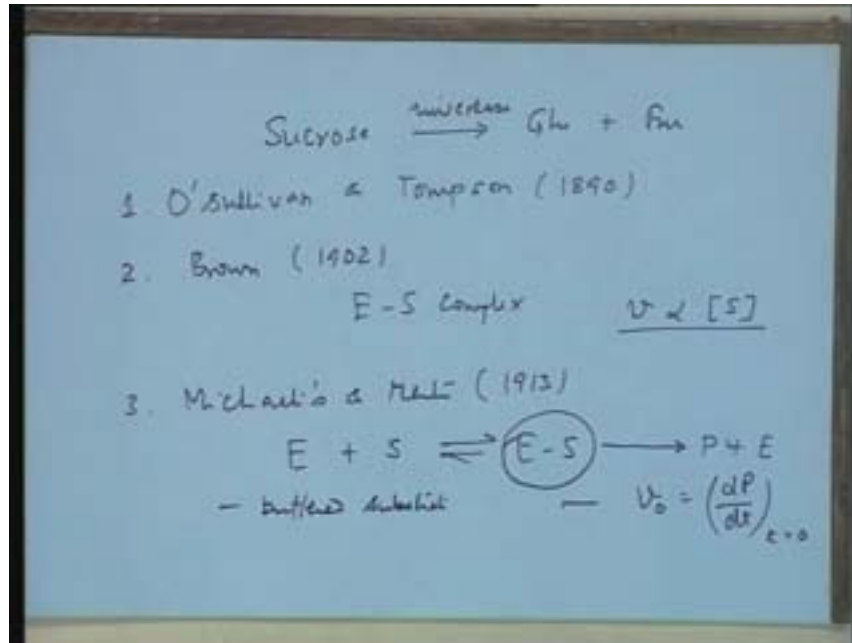 Sucrose invertase → Glu + Fru
1 O'Sullivan & Tompson (1890)
2. Brown (1902)
E-S Complex v α [S]
3. Michaeli's & Menten (1913)
E + S ⇌ E-S → P + E
- buffered substrate — v₀ = (dP/dt)ₜ₌₀